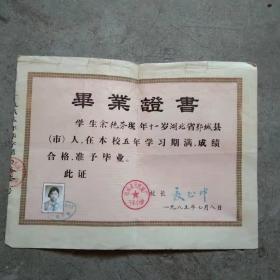 畢業證書
学生余艳芬现年十一岁湖北省鄂城县
(市)人,在本校五年学习期满,成绩
合格,准予毕业。
此证
校长
一九八五年七月八日